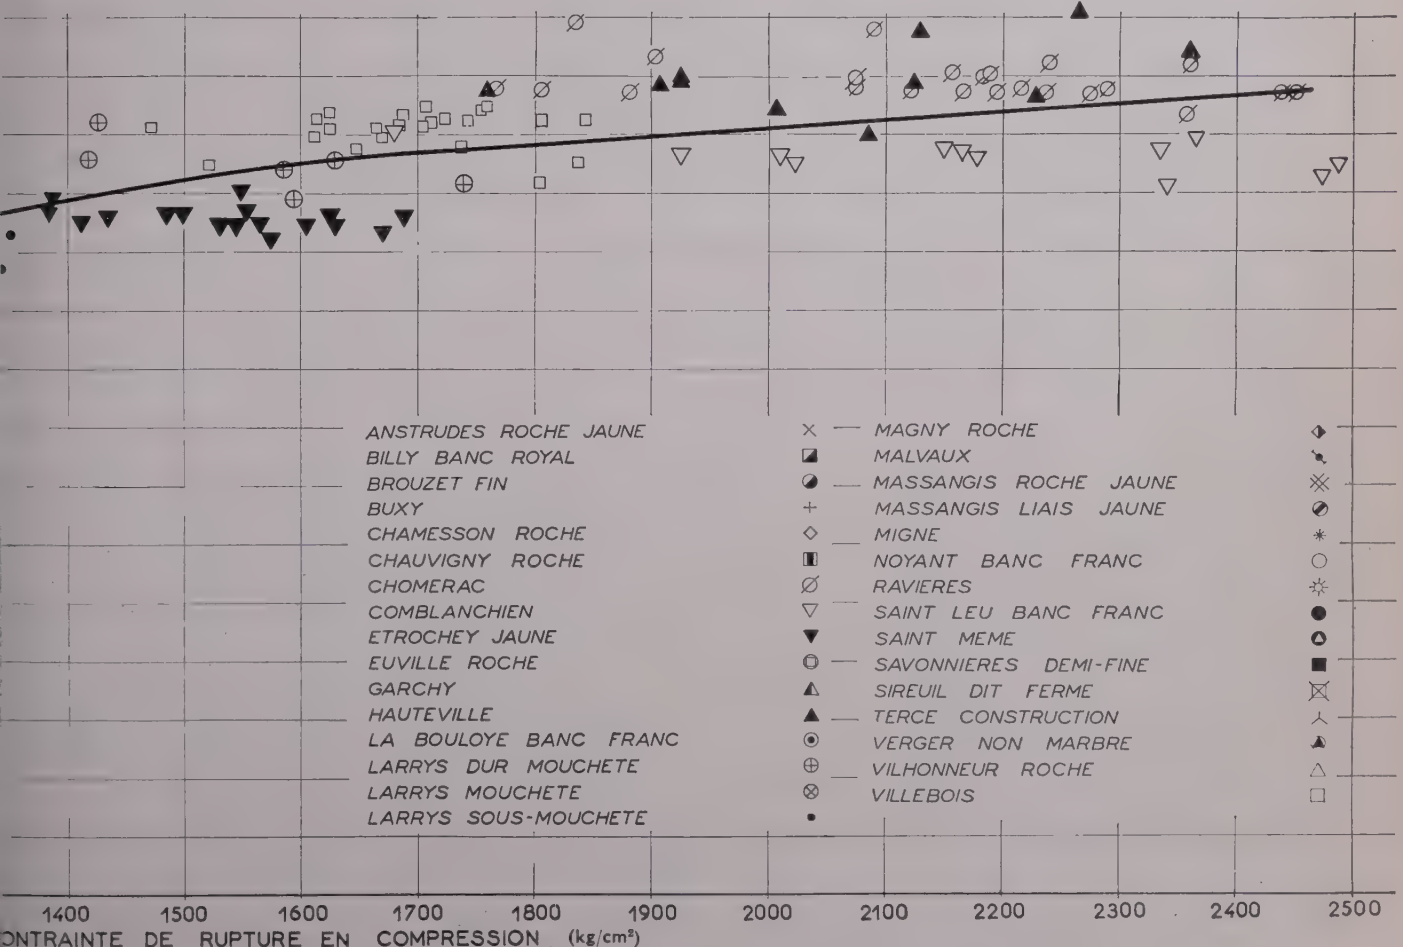 ANSTRUDES ROCHE JAUNE
BILLY BANC ROYAL
BROUZET FIN
BUXY
CHAMESSON ROCHE
CHAUVIGNY ROCHE
CHOMERAC
COMBLANCHIEN
ETROCHEY JAUNE
EUVILLE ROCHE
GARCHY
HAUTEVILLE
LA BOULOYE BANC FRANC
LARRYS DUR MOUCHETE
LARRYS MOUCHETE
LARRYS SOUS-MOUCHETE
MAGNY ROCHE
MALVAUX
MASSANGIS ROCHE JAUNE
MASSANGIS LIAIS JAUNE
MIGNE
NOYANT BANC FRANC
RAVIERES
SAINT LEU BANC FRANC
SAINT MEME
SAVONNIERES DEMI-FINE
SIREUIL DIT FERME
TERCE CONSTRUCTION
VERGER NON MARBRE
VILHONNEUR ROCHE
VILLEBOIS
1400 1500 1600 1700 1800 1900 2000 2100 2200 2300 2400 2500
ONTRAINTE DE RUPTURE EN COMPRESSION (kg/cm²)